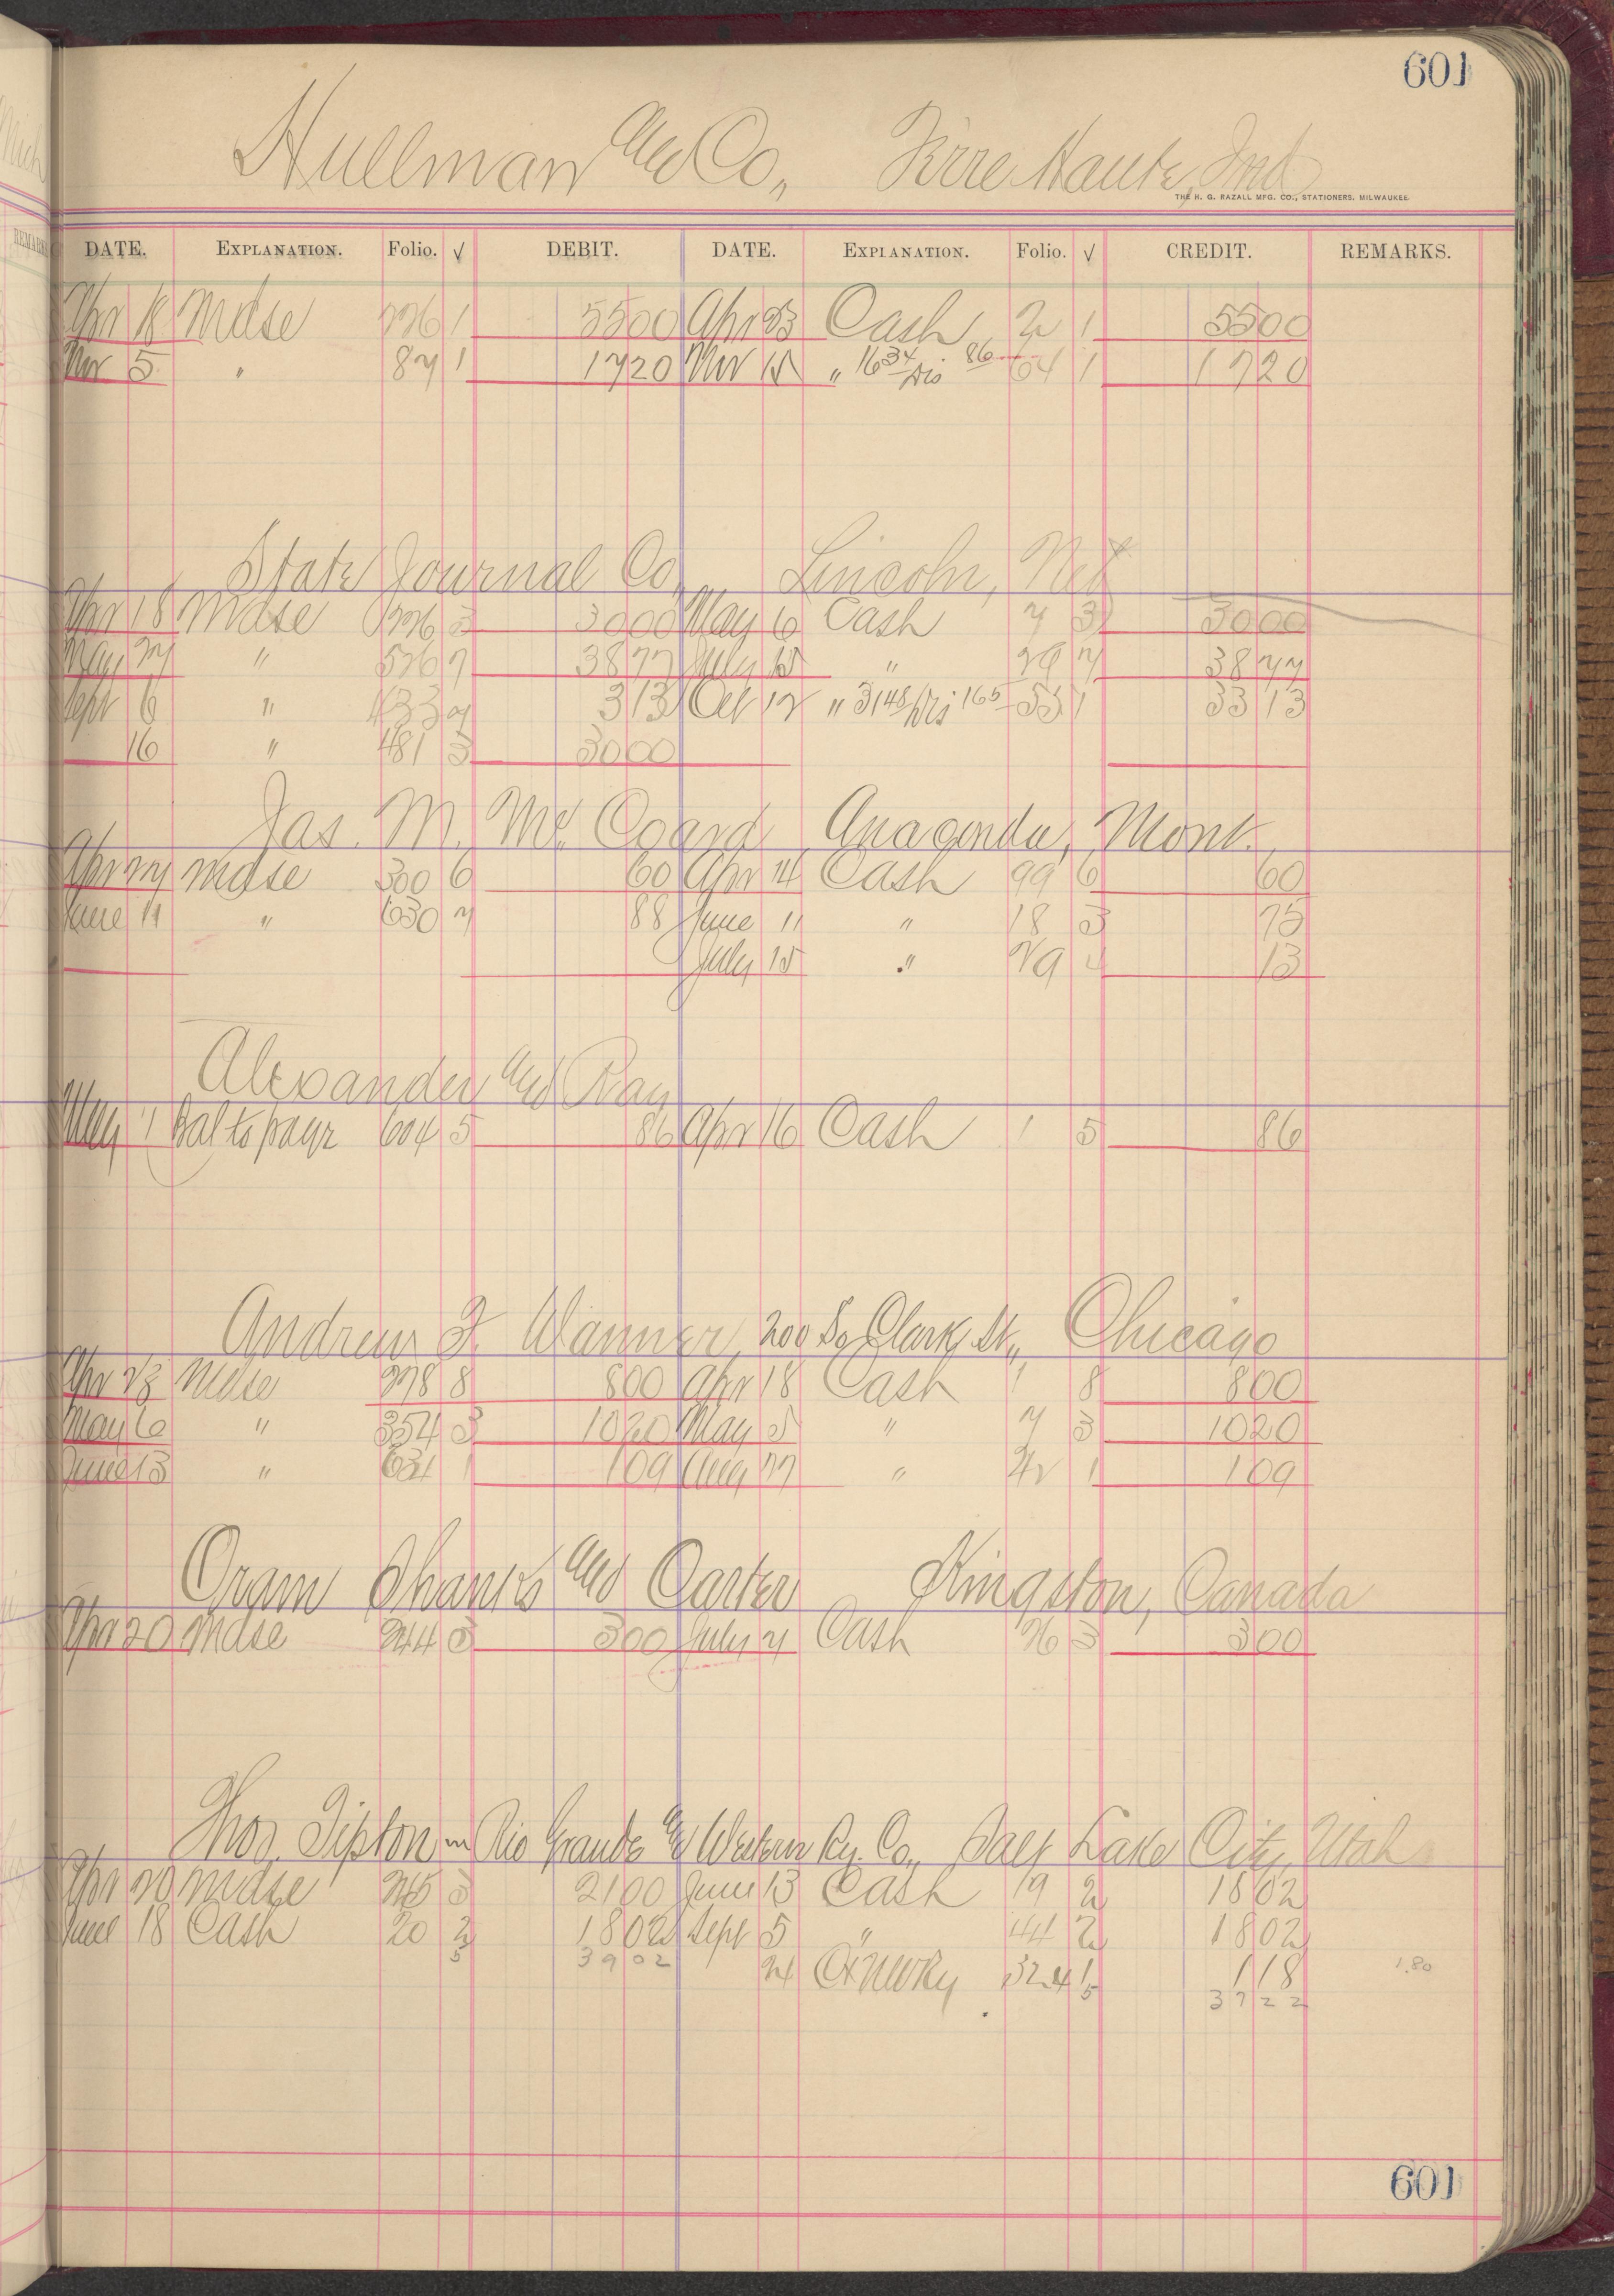 601
Hullman and Co., Terre Haute, Ind
THE H. G. RAZALL MFG. CO., STATIONERS. MILWAUKEE.
DATE. EXPLANATION. Folio. √ DEBIT. DATE. EXPLANATION. Folio. √ CREDIT. REMARKS.
Apr 18 Mdse 226 1 5500 Apr 23 Cash 2 1 5500
Nov 5 " 87 1 1720 Nov 15 " 1634/Dis 86 64 1 1720
State Journal Co., Lincoln, Neb
Apr 18 Mdse 226 3 3000 May 6 Cash 7 3 3000
May 27 " 526 7 3877 July 15 " 29 7 3877
Sept 6 " 433 7 313 Oct 12 " 3148/Dis 165 55 1 3313
16 " 481 3 3000
Jas. M. Mc Coard, Anaconda, Mont.
Apr 27 Mdse 300 6 60 Apr 14 Cash 99 6 60
June 11 " 630 7 88 June 11 " 18 3 75
July 15 " 29 4 13
Alexander and Ray
May 1 Bal to payr 604 5 86 Apr 16 Cash 1 5 86
Andrew F. Wanner, 200 So Clark St., Chicago
Apr 23 Mdse 278 8 800 Apr 18 Cash 1 8 800
May 6 " 354 3 1020 May 5 " 7 3 1020
June 13 " 634 1 109 Aug 27 " 42 1 109
Oram Shanks and Carter Kingston, Canada
Apr 20 Mdse 244 3 300 July 7 Cash 26 3 300
Thos. Tipton Rio Grande & Western Ry. Co., Salt Lake City, Utah
Apr 20 Mdse 245 3 2100 June 13 Cash 19 2 1802
June 18 Cash 20 2 1802 Sept 5 " 44 2 1802
5 3902 24 324 1 118 1.80
5 3722
601